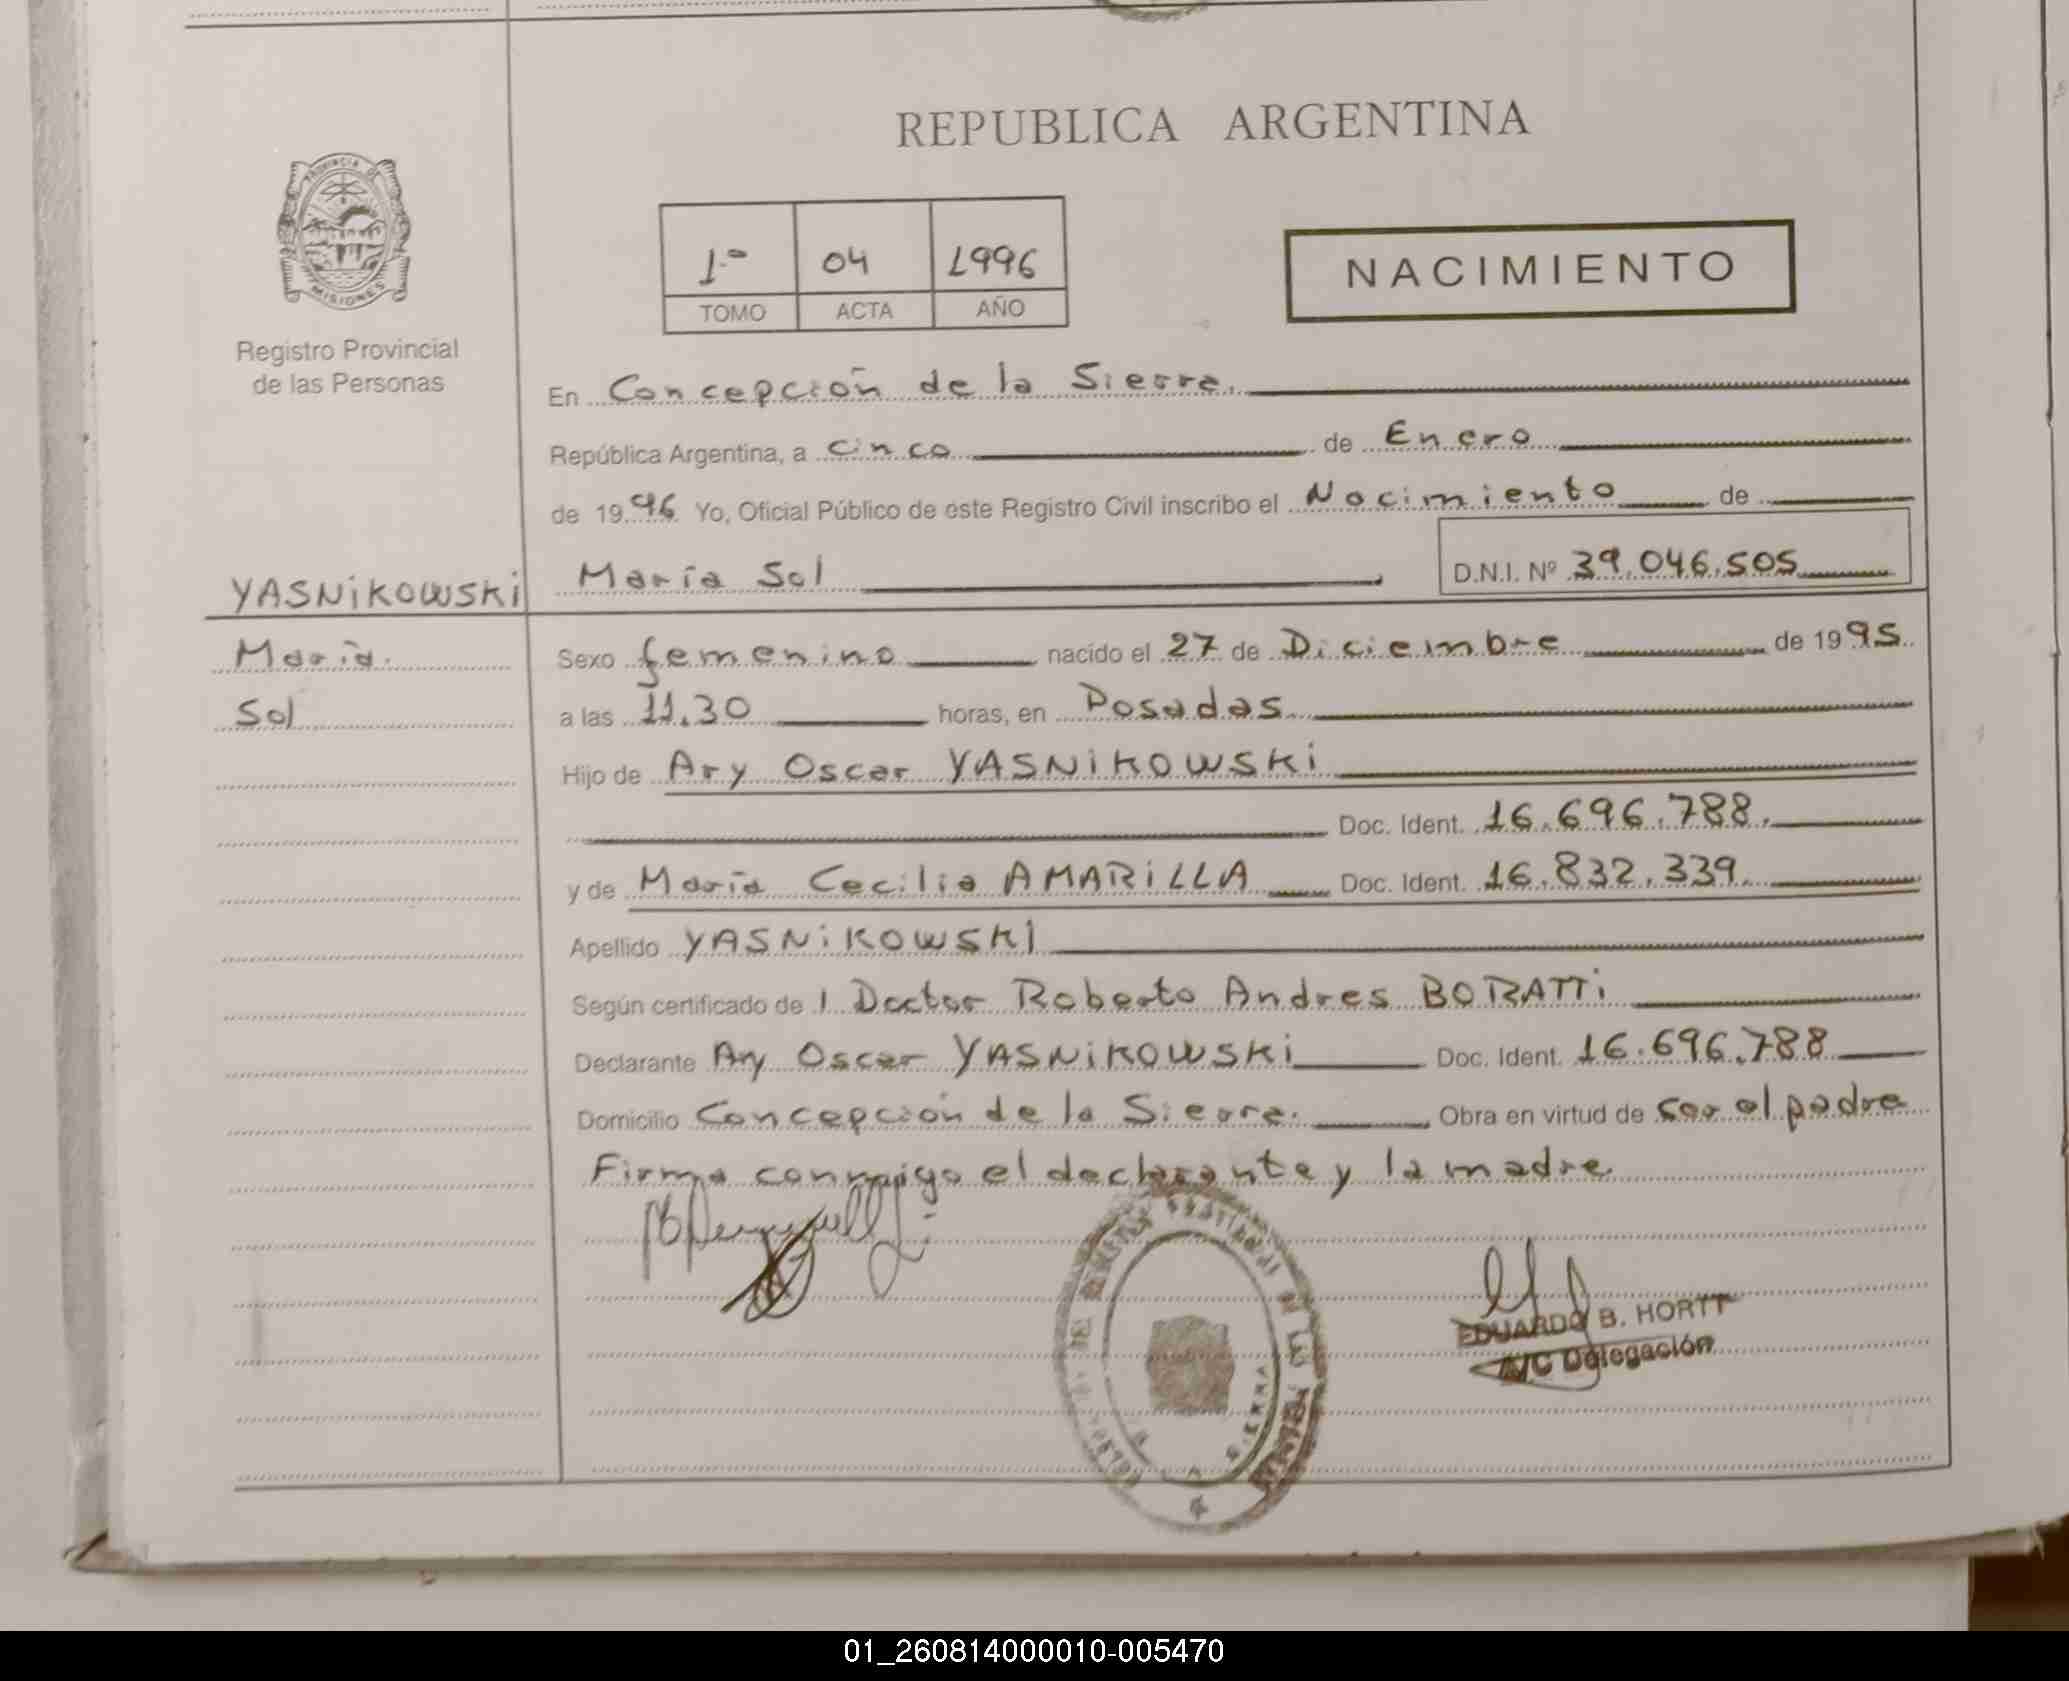 REPUBLICA ARGENTINA
PROVINCIA DE MISIONES
Registro Provincial
de las Personas
1º 04 1996
TOMO ACTA AÑO
NACIMIENTO
En Concepción de la Sierra.
República Argentina, a cinco de Enero
de 1996 Yo, Oficial Público de este Registro Civil inscribo el Nacimiento de
YASNiKOWSKi María Sol D.N.I. Nº 39.046.505
María Sexo femenino nacido el 27 de Diciembre de 1995
Sol a las 11.30 horas, en Posadas
Hijo de Ary Oscar YASNiKOWSKi
Doc. Ident. 16.696.788.
y de María Cecilia AMARiLLA Doc. Ident. 16.832.339.
Apellido YASNiKOWSKi
Según certificado de l Doctor Roberto Andres BORATTi
Declarante Ary Oscar YASNiKOWSKi Doc. Ident. 16.696.788
Domicilio Concepción de la Sierra. Obra en virtud de ser el padre
Firma conmigo el declarante y la madre.
EDUARDO B. HORTT
A/C Delegación
01_260814000010-005470